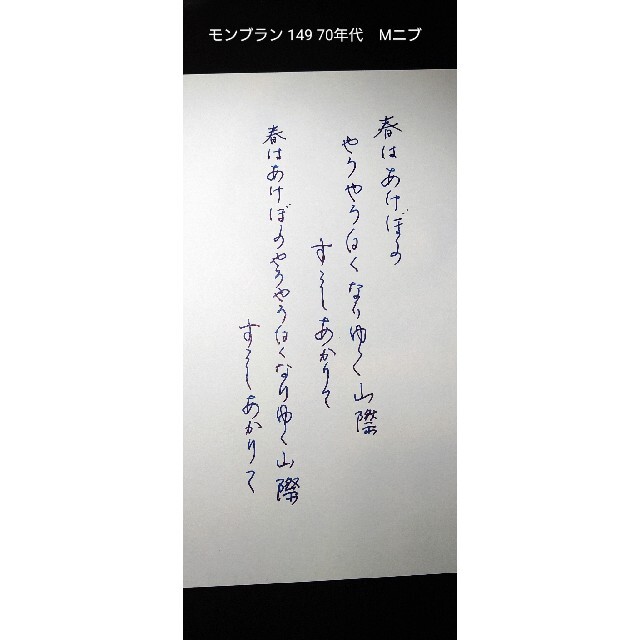 モンブラン 149 70年代　Mニブ
春はあけぼの
やうやう白くなりゆく山際
すこしあかりて
春はあけぼのやうやう白くなりゆく山際
すこしあかりて